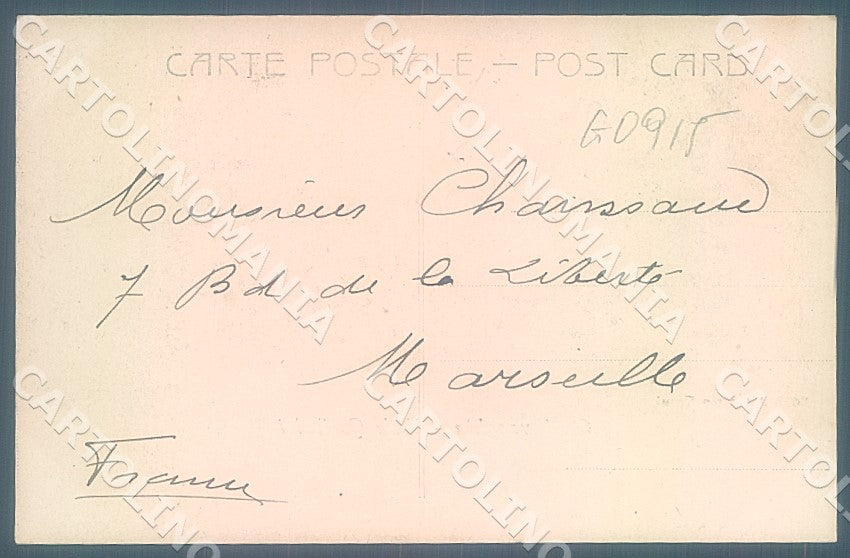 CARTE POSTALE — POST CARD
G0915
Monsieur Chanssaud
7 Bd de la Liberté
Marseille
France
CARTOLINOMANIA
CARTOLINOMANIA
CARTOLINOMANIA
CARTOLINO
CARTOLINO
CARTOLINO